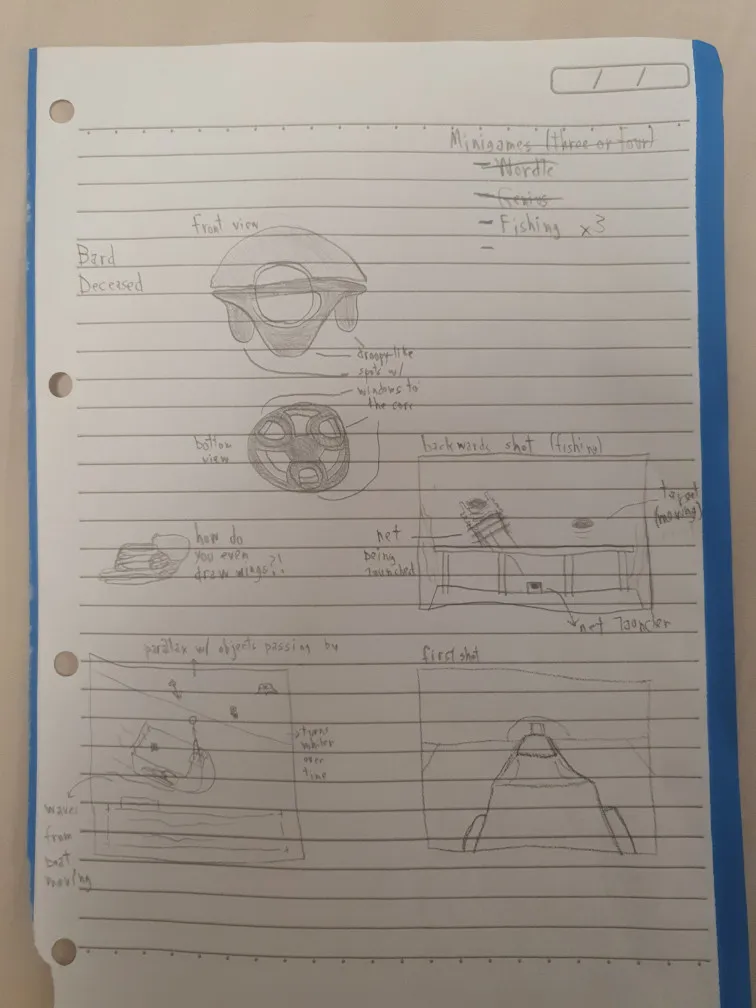 Minigames (three or four)
- Wordle
- Genius
- Fishing x3
-
front view
Bard
Deceased
droopy-like
spots w/
windows to
the core
bottom
view
backwards shot (fishing)
target
(moving)
net
being
launched
how do
you even
draw wings?!
net
parallax w/ objects passing by
first shot
turns
over
time
waves
from
boat
moving